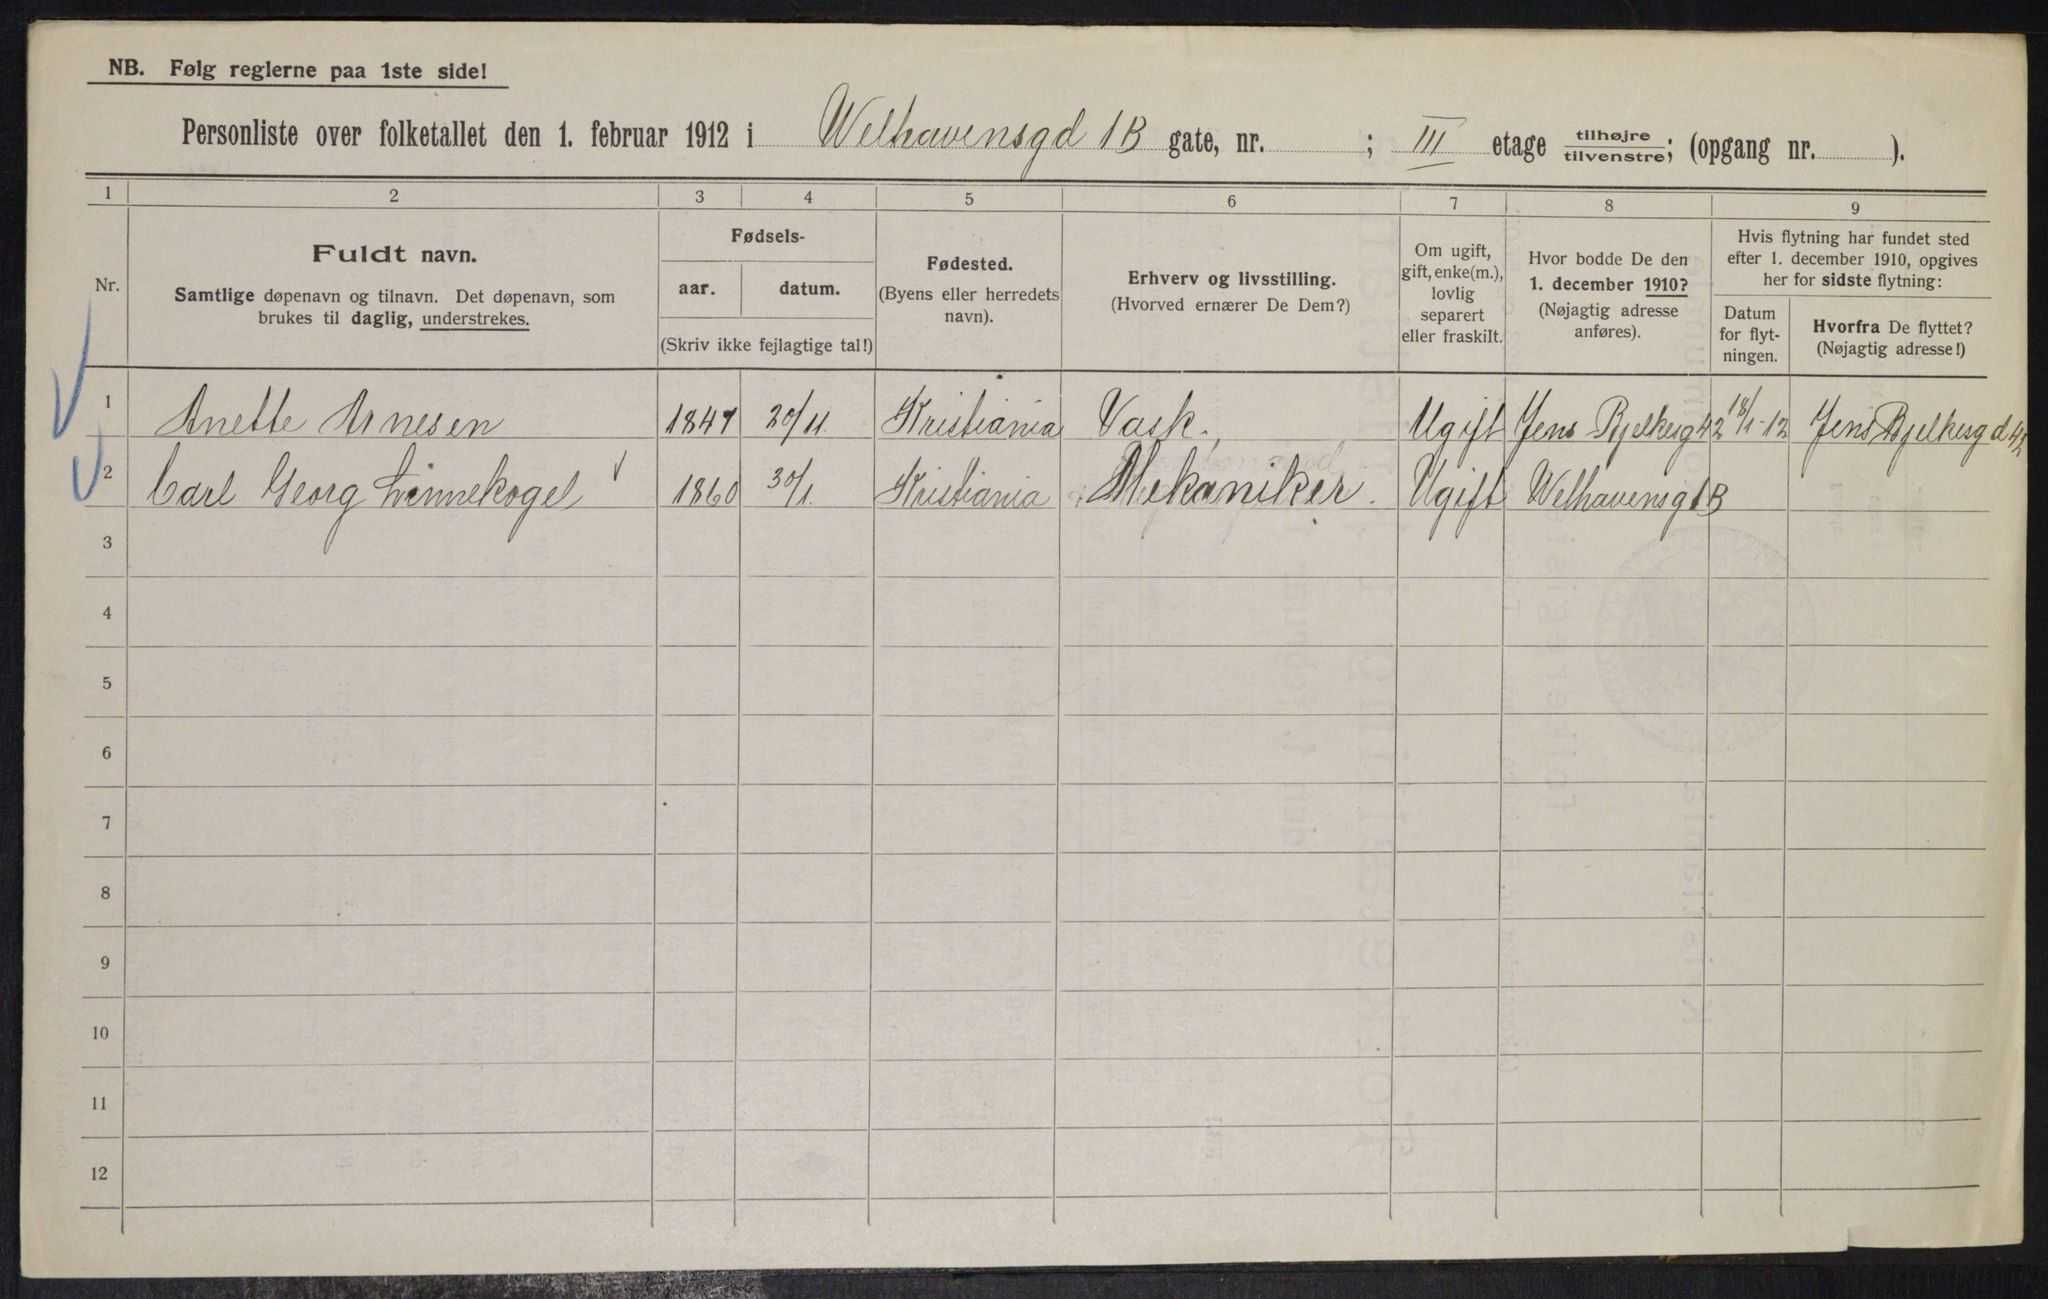 NB. Følg reglerne paa 1ste side!
Personliste over folketallet den 1. februar 1912 i Welhavensgd 1B gate, nr. ; III etage tilhøjre/tilvenstre; (opgang nr. ).
1 2 3 4 5 6 7 8 9
Nr.
Fuldt navn.
Samtlige døpenavn og tilnavn. Det døpenavn, som
brukes til daglig, understrekes.
Fødsels-
aar. datum.
(Skriv ikke fejlagtige tal!)
Fødested.
(Byens eller herredets
navn).
Erhverv og livsstilling.
(Hvorved ernærer De Dem?)
Om ugift,
gift, enke(m.),
lovlig
separert
eller fraskilt.
Hvor bodde De den
1. december 1910?
(Nøjagtig adresse
anføres).
Hvis flytning har fundet sted
efter 1. december 1910, opgives
her for sidste flytning:
Datum
for flyt-
ningen.
Hvorfra De flyttet?
(Nøjagtig adresse!)
1 Anette Arnesen 1847 20/11. Kristiania Vask. Ugift Jens Bjelkesg 42 18/1-12 Jens Bjelkesgd 42
2 Carl Georg Linnekogel 1860 30/1. Kristiania Mekaniker. Ugift Welhavensg 1B
3
4
5
6
7
8
9
10
11
12